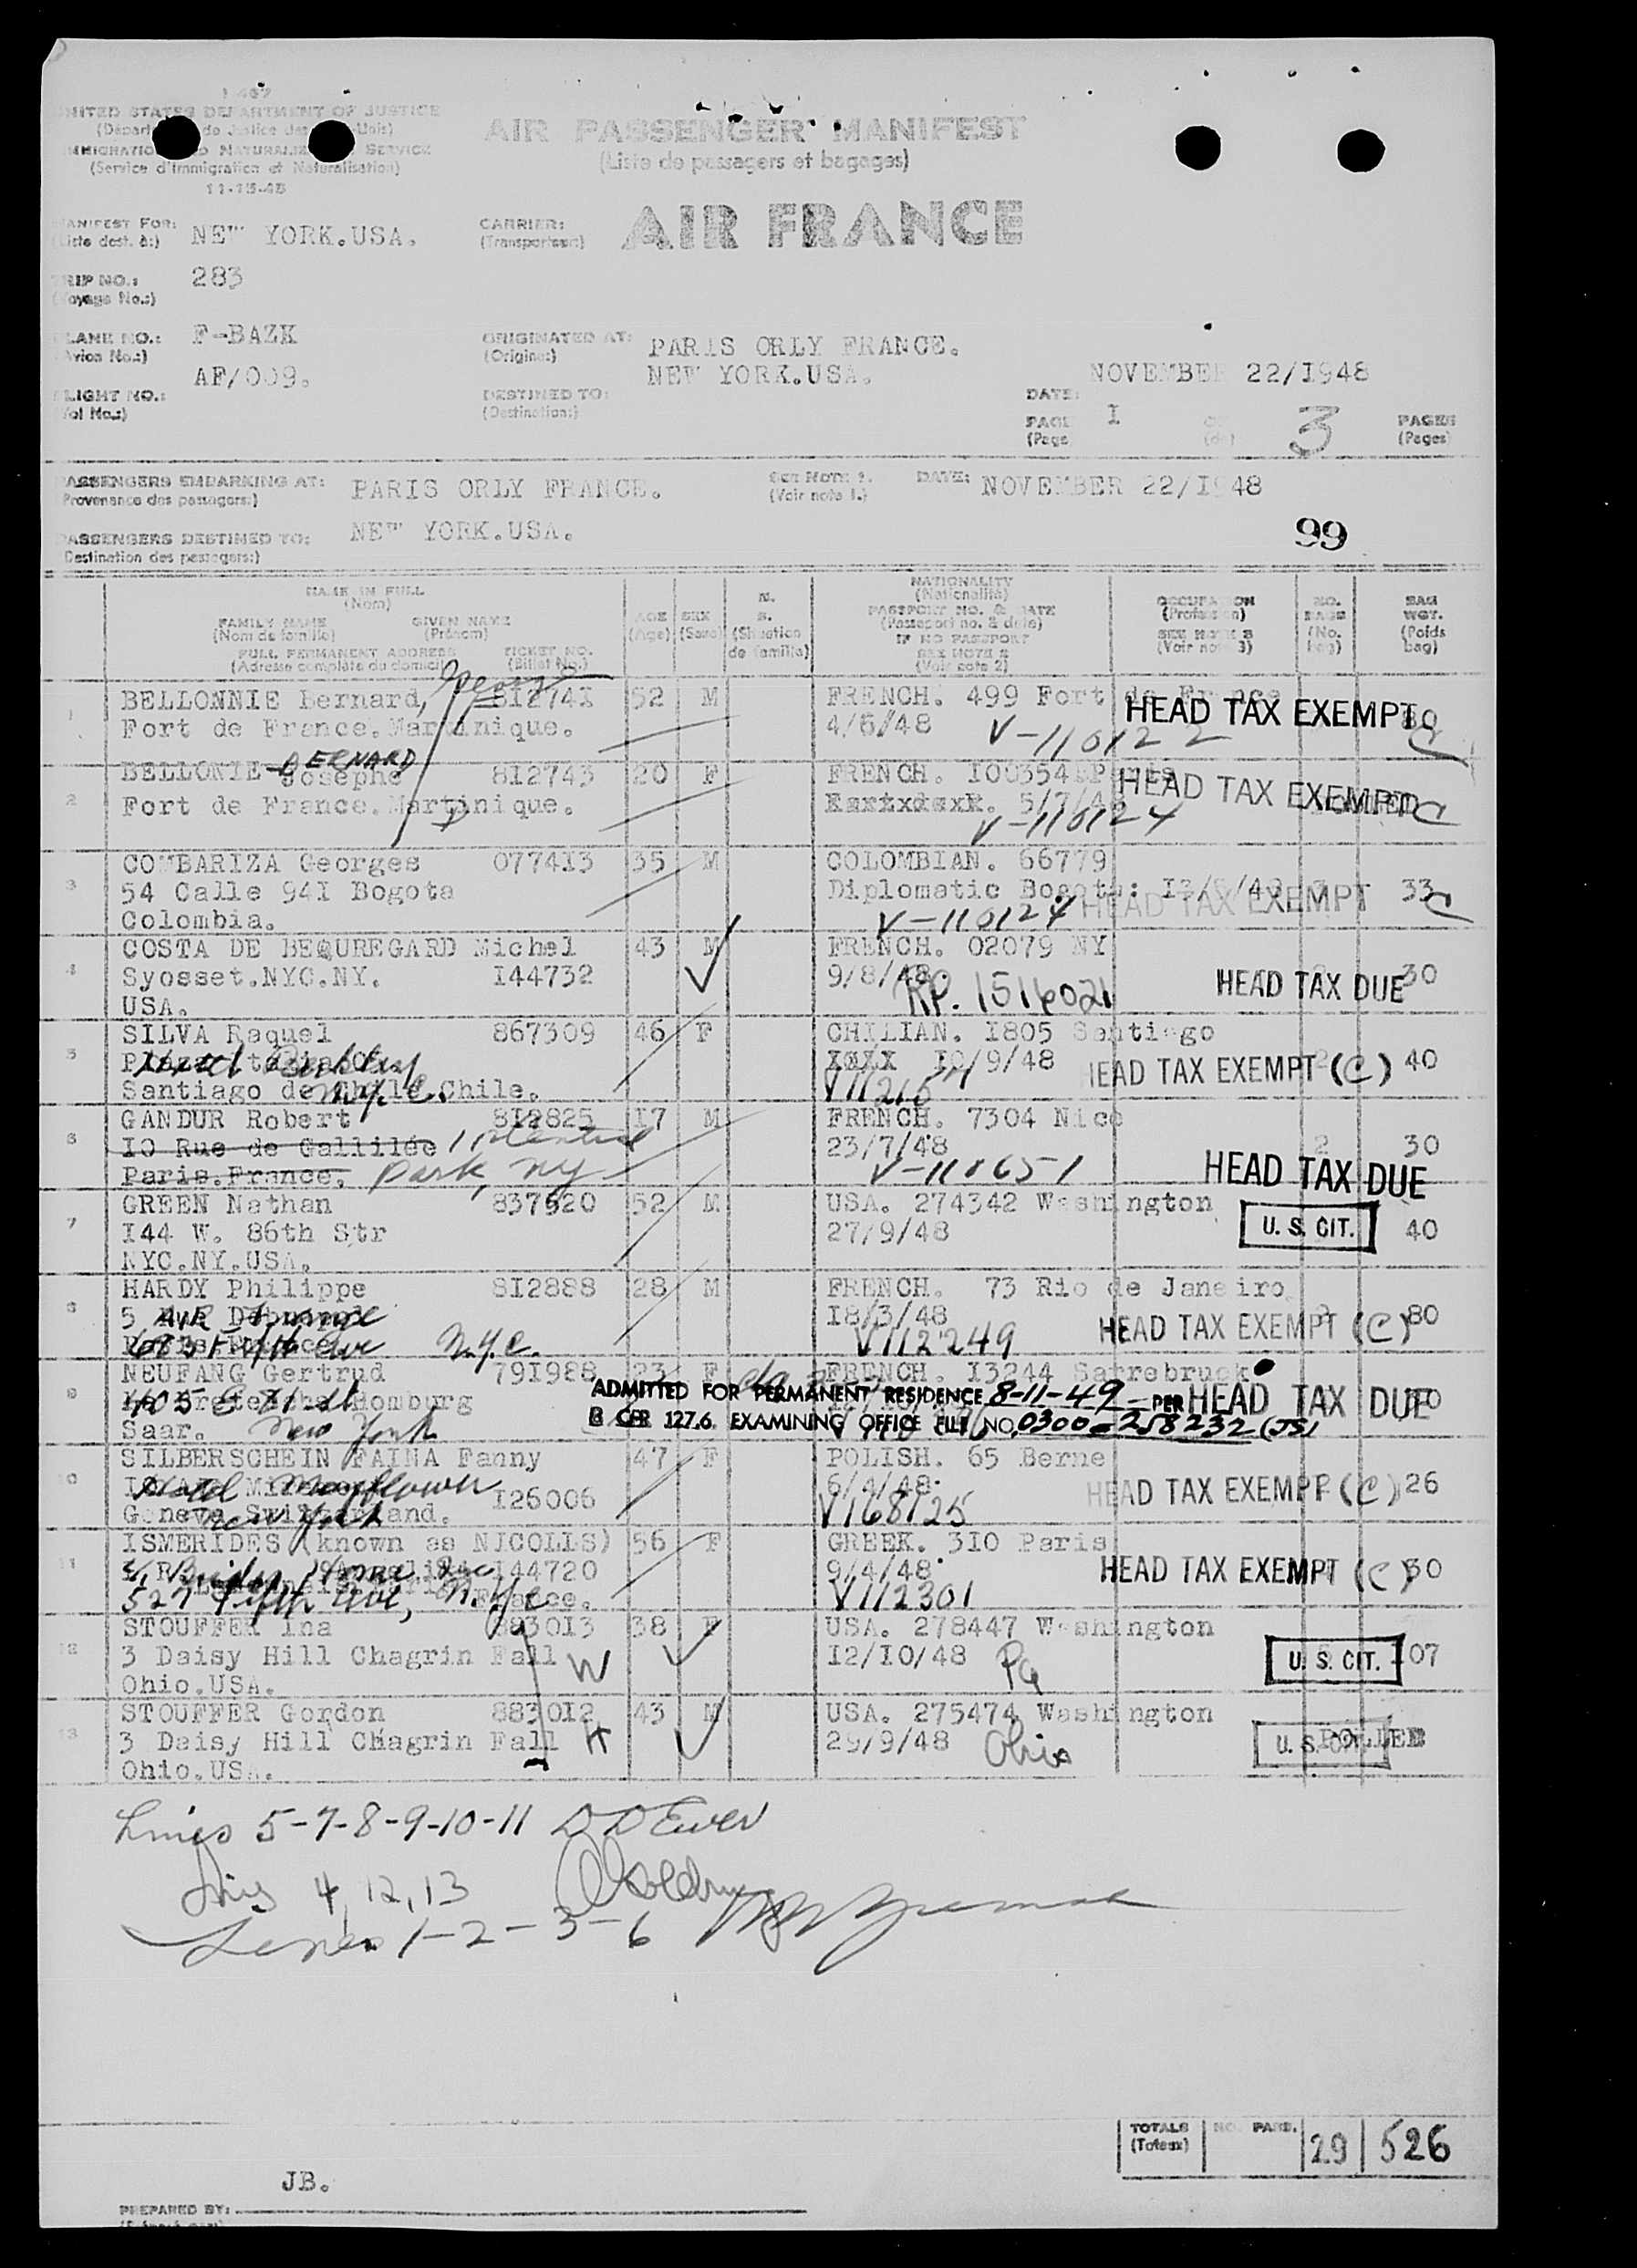 I-467
UNITED STATES DEPARTMENT OF JUSTICE
IMMIGRATION AND NATURALIZATION SERVICE
(Service d'Immigration et Naturalisation)
11-15-45
AIR PASSENGER MANIFEST
(Liste de passagers et bagages)
MANIFEST FOR: NEW YORK.USA.
(Liste dest. à:)
CARRIER: AIR FRANCE
(Transporteur:)
TRIP NO.: 283
(Voyage No.:)
PLANE NO.: F-BAZK
(Avion No.:)
ORIGINATED AT: PARIS ORLY FRANCE.
(Origine:)
FLIGHT NO.: AF/009.
(Vol No.:)
DESTINED TO: NEW YORK.USA.
(Destination:)
DATE: NOVEMBER 22/I948
PAGE I OF 3 PAGES
(Page (de) (Pages)
PASSENGERS EMBARKING AT: PARIS ORLY FRANCE.
Provenance des passagers:)
SEE NOTE 1.
(Voir note 1.)
DATE: NOVEMBER 22/I948
PASSENGERS DESTINED TO: NEW YORK.USA.
Destination des passagers:)
99
NAME IN FULL
(Nom)
FAMILY NAME GIVEN NAME
(Nom de famille) (Prénom)
FULL PERMANENT ADDRESS TICKET NO.
(Adresse complète du domicile) (Billet No.)
AGE
(Age)
SEX
(Sexe)
M.
S.
(Situation
de famille)
NATIONALITY
(Nationalité)
PASSPORT NO. & DATE
(Passeport no. & date)
IF NO PASSPORT
SEE NOTE 2
(Voir note 2)
OCCUPATION
(Profession)
SEE NOTE 3
(Voir note 3)
NO.
BAGS
(No.
bag)
BAG
WGT.
(Poids
bag)
1 BELLONNIE Bernard, 8I274I 52 M FRENCH. 499 Fort de France
Fort de France.Martinique. 4/6/48 HEAD TAX EXEMPT C
V-110122
2 BELLONIE BERNARD Josephe 8I2743 20 F FRENCH. I00354 Paris
Fort de France.Martinique. 5/7/48 HEAD TAX EXEMPT C
V-110124
3 COMBARIZA Georges 0774I3 35 M COLOMBIAN. 66779
54 Calle 94I Bogota Diplomatic Bogota: HEAD TAX EXEMPT 33 C
Colombia. V-110127
4 COSTA DE BEQUREGARD Michel 43 M FRENCH. 02079 NY
Syosset.NYC.NY. I44732 9/8/48 HEAD TAX DUE 30
USA. RP. 1516021
5 SILVA Raquel 867309 46 F CHILIAN. I805 Santiago
/9/48 HEAD TAX EXEMPT (C) 2 40
Santiago de Chile.Chile. N.Y.C.
6 GANDUR Robert 8I2825 I7 M FRENCH. 7304 Nice
IO Rue de Gallilée 23/7/48 2 30
Paris.France. Park, NY V-118651 HEAD TAX DUE
7 GREEN Nathan 837620 52 M USA. 274342 Washington
I44 W. 86th Str 27/9/48 U. S. CIT. 40
NYC.NY.USA.
8 HARDY Philippe 8I2888 28 M FRENCH. 73 Rio de Janeiro.
5 I8/3/48 HEAD TAX EXEMPT (C) 80
N.Y.C. V112249
9 NEUFANG Gertrud 79I988 23 F FRENCH. I3244 Sarrebruck
405 E 81 St Homburg ADMITTED FOR PERMANENT RESIDENCE 8-11-49 PER HEAD TAX DUE
Saar. New York 8 CFR 127.6. EXAMINING OFFICE FILE NO. 0300-258232 (JS)
10 SILBERSCHEIN FAINA Fanny 47 F POLISH. 65 Berne
Hotel Mayflower I26006 6/4/48 HEAD TAX EXEMPT (C) 26
Geneva.Switzerland. New York V168125
11 ISMERIDES (known as NICOLLS) 56 F GREEK. 3I0 Paris
I44720 9/4/48 HEAD TAX EXEMPT (C) 30
527 Fifth Ave, N.Y.C France. V112301
12 STOUFFER Ina 883013 38 F USA. 278447 Washington
3 Daisy Hill Chagrin Fall W I2/IO/48 Pa U. S. CIT. 107
Ohio.USA.
13 STOUFFER Gordon 883012 43 M USA. 275474 Washington
3 Daisy Hill Chagrin Fall H 29/9/48 Ohio U. S. CIT. POOLED
Ohio.USA.
Lines 5-7-8-9-10-11 D D Ewer
Lines 4, 12, 13
Lines 1-2-3-6
TOTALS NO. PASS. 29 526
(Totaux)
JB.
PREPARED BY: